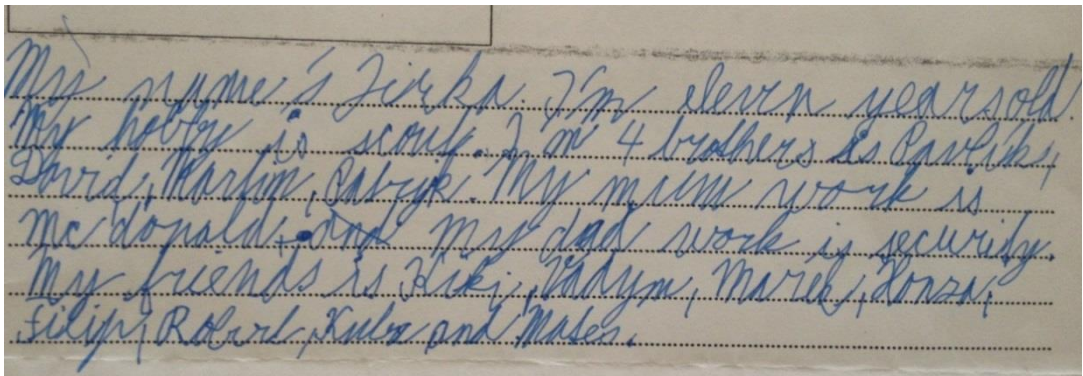 My name's Jirka. I'm eleven years old.
My hobby is scout. I'm 4 brothers is Pavlik,
David, Martin, Patryk. My mum work is
Mc donald and my dad work is security.
My friends is Kiki, Vadym, Marek, Honza,
Filip, Robert, Kuba and Mates.